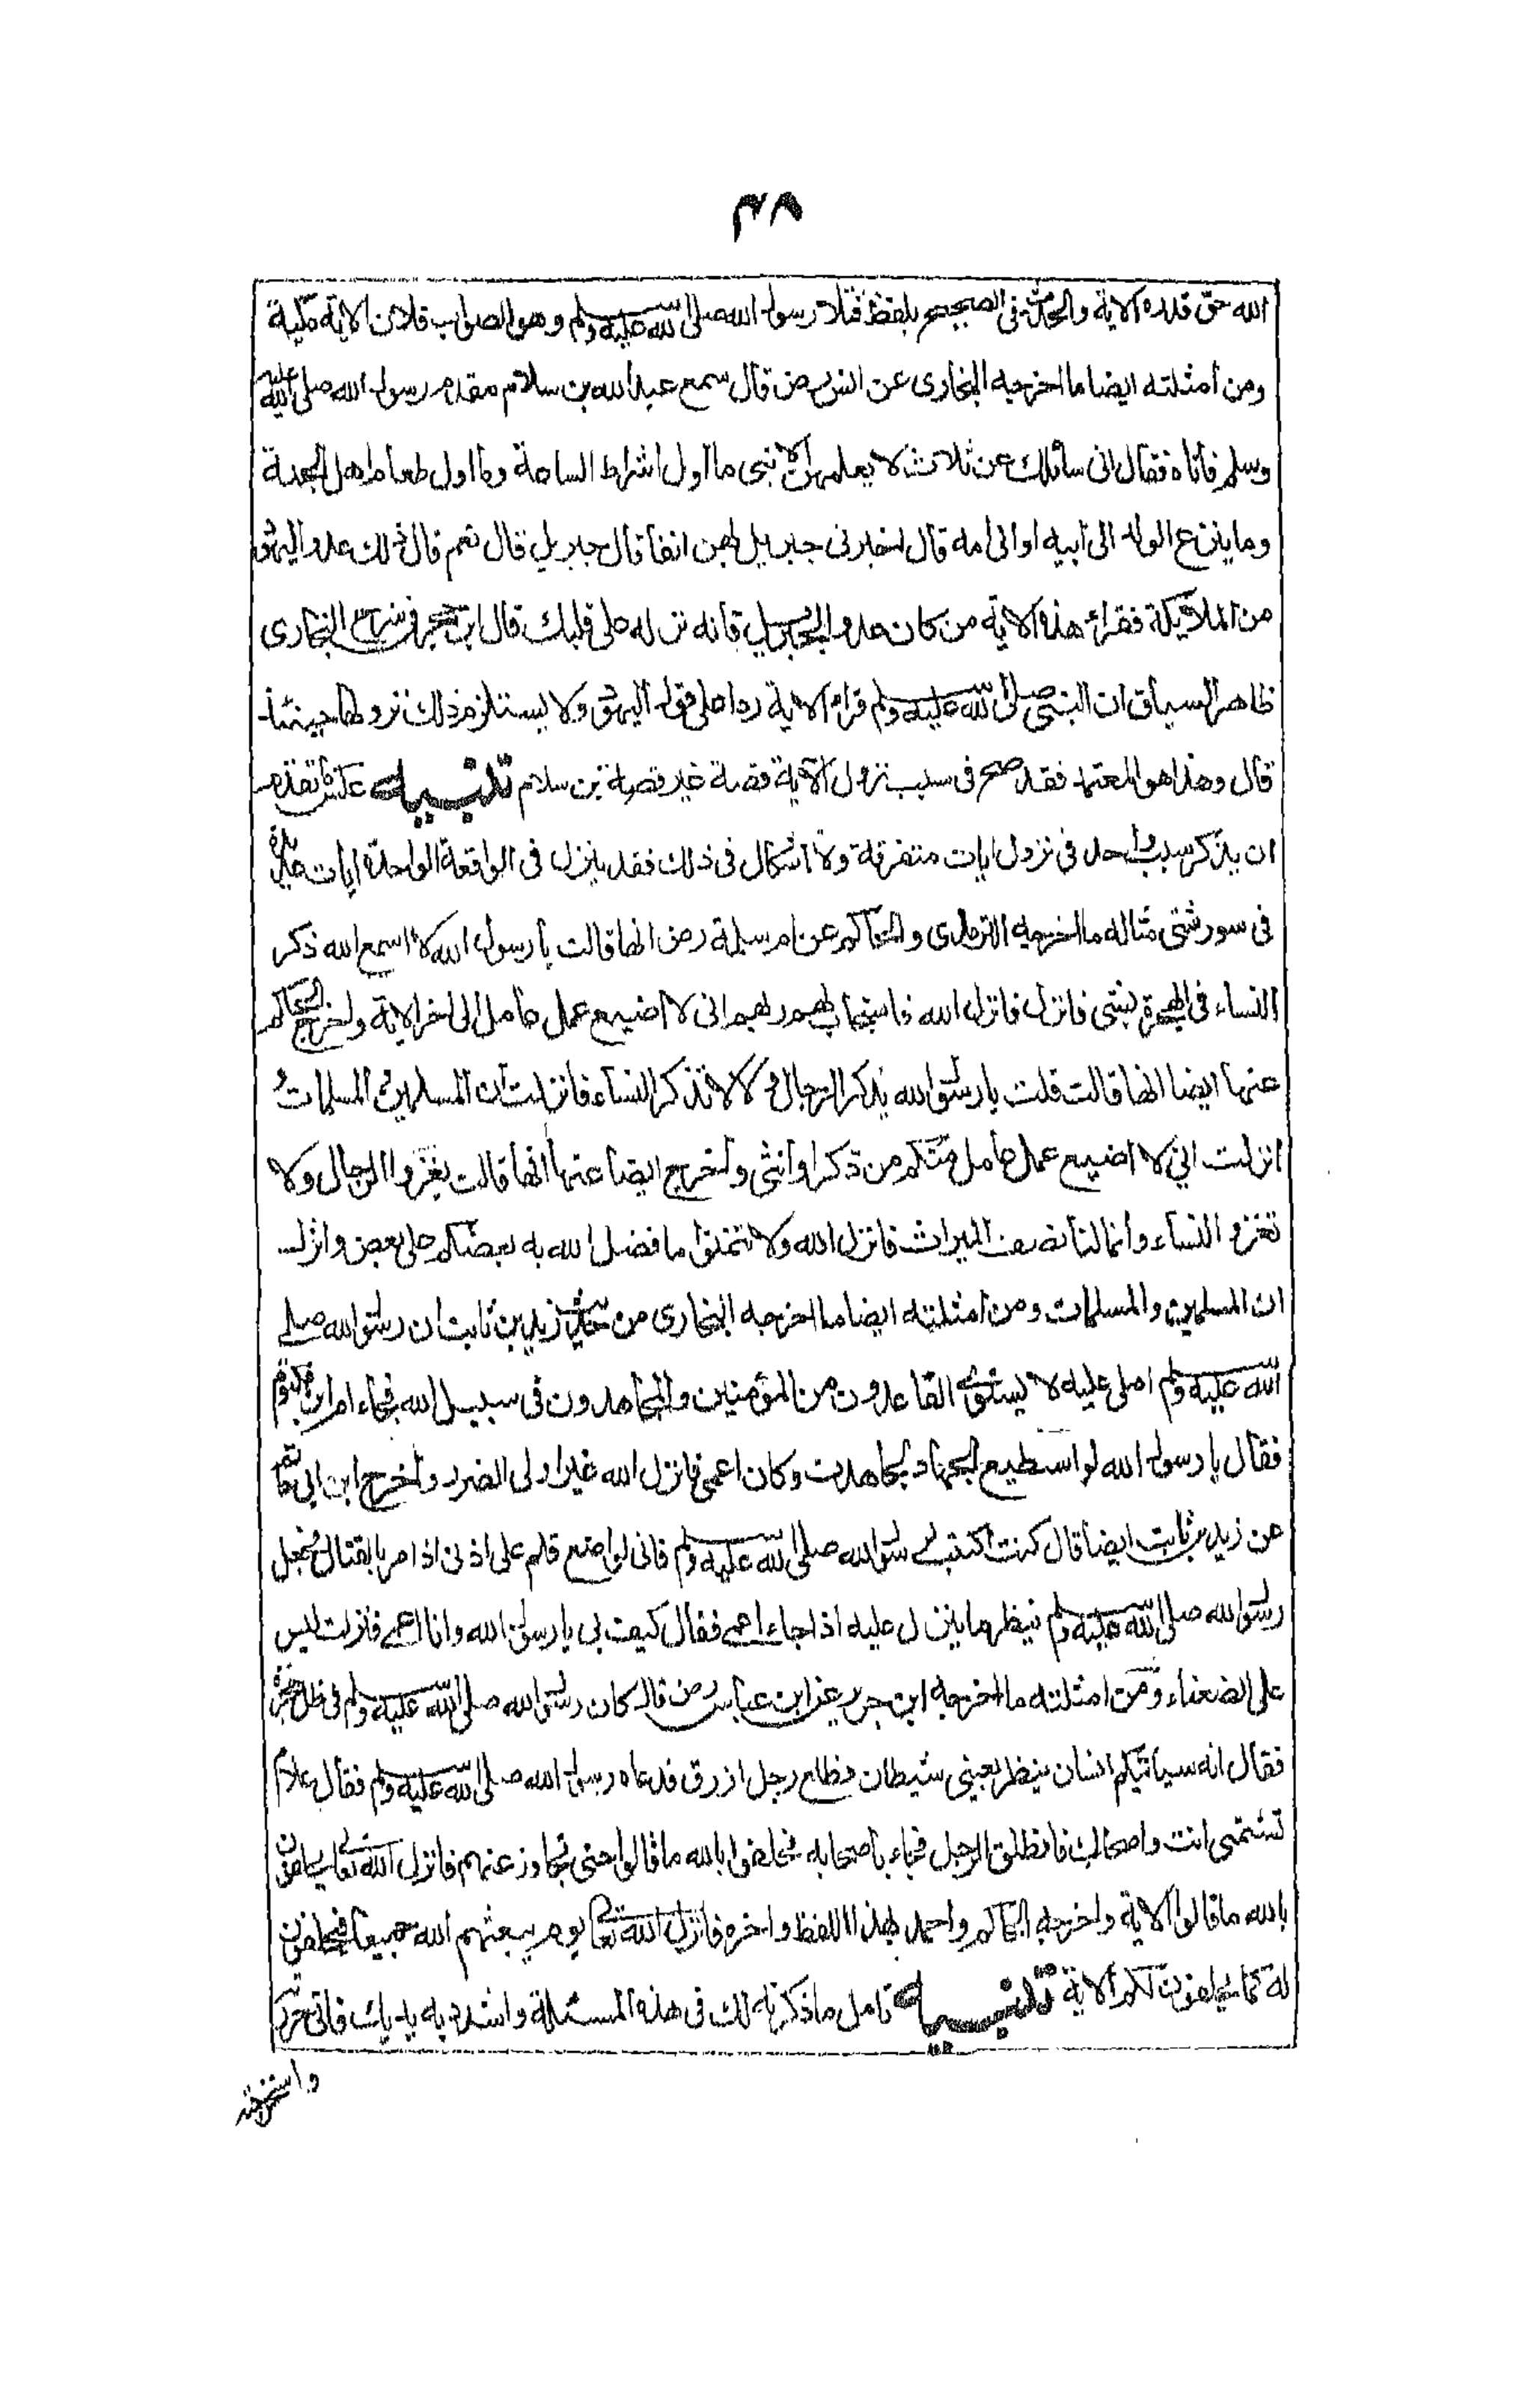 ٣٨
الله حق قدره الاية والحديث فى الصحيح بلفظ فتلا رسول الله صلى الله عليه وسلم وهو الصواب فلان الاية مكية
ومن امثلته ايضا ما اخرجه البخارى عن انس رض قال سمع عبد الله بن سلام مقدم رسول الله صلى الله عليه
وسلم فاتاه فقال انى سائلك عن ثلاث لا يعلمهن الا نبى ما اول اشراط الساعة وما اول طعام اهل الجنة
وما ينزع الولد الى ابيه او الى امه قال اخبرنى جبريل بهن انفا قال جبريل قال نعم قال ذلك عدو اليهود
من الملائكة فقرا هذه الاية من كان عدوا لجبريل فانه نزله على قلبك قال ابن حجر فى شرح البخارى
ظاهر السياق ان النبى صلى الله عليه وسلم قرا الاية ردا على قول اليهود ولا يستلزم ذلك نزولها حينئذ
قال وهذا هو المعتمد فقد صح فى سبب نزول الآية قصة غير قصة بن سلام تنبيه عكس ما تقدم
ان يذكر سبب واحد فى نزول ايات متفرقة ولا اشكال فى ذلك فقد ينزل فى الواقعة الواحدة ايات عديدة
فى سور شتى مثاله ما اخرجه الترمذى والحاكم عن ام سلمة رض انها قالت يا رسول الله لا اسمع الله ذكر
النساء فى الهجرة بشئ فانزل فانزل الله فاستجاب لهم ربهم انى لا اضيع عمل عامل الى اخر الاية واخرج الحاكم
عنها ايضا انها قالت قلت يا رسول الله يذكر الرجال ولا تذكر النساء فانزلت ان المسلمين والمسلمات و
انزلت انى لا اضيع عمل عامل منكم من ذكر او انثى واخرج ايضا عنها انها قالت يغزوا الرجال ولا
تغزو النساء وانما لنا نصف الميراث فانزل الله ولا تتمنوا ما فضل الله به بعضكم على بعض وانزل
ان المسلمين والمسلمات ومن امثلته ايضا ما اخرجه البخارى من حديث زيد بن ثابت ان رسول الله صلى
الله عليه وسلم املى عليه لا يستوى القاعدون من المؤمنين والمجاهدون فى سبيل الله فجاء ام ابن مكتوم
فقال يا رسول الله لو استطيع الجهاد لجاهدت وكان اعمى فانزل الله غير اولى الضرر واخرج ابن ابى حاتم
عن زيد بن ثابت ايضا قال كنت اكتب لرسول الله صلى الله عليه وسلم فانى لواضع قلم على اذنى اذ امر بالقتال فجعل
رسول الله صلى الله عليه وسلم ينظر ما ينزل عليه اذ اجاء اعمى فقال كيف بى يا رسول الله وانا اعمى فنزلت ليس
على الضعفاء ومن امثلته ما اخرجه ابن جرير عن ابن عباس رض قال كان رسول الله صلى الله عليه وسلم فى ظل حجرة
فقال انه سياتيكم انسان ينظر بعينى شيطان فطلع رجل ازرق فدعاه رسول الله صلى الله عليه وسلم فقال علام
تشتمنى انت واصحابك فانطلق الرجل فجاء باصحابه فحلفوا بالله ما قالوا حتى تجاوز عنهم فانزل الله تعالى يحلفون
بالله ما قالوا الاية واخرجه الحاكم واحمد بهذا اللفظ واخره فانزل الله تعالى يوم يبعثهم الله جميعا فيحلفون
له كما يحلفون لكم الاية تنبيه تامل ما ذكرته لك فى هذه المسئلة واشدد به يديك فانى حررته